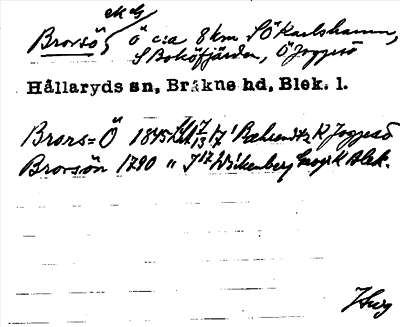 Brorsö, Ö c:a 8 km SÖ Karlshamn,
S Boköfjärden, Ö Joggesö
Hållaryds sn, Bräkne hd, Blek. l.
Brors=Ö 1845 7/13 17 Bæhrendtz K Joggesö
Brorsön 1790 " J 17 Wickenberg Geogr K Blek.